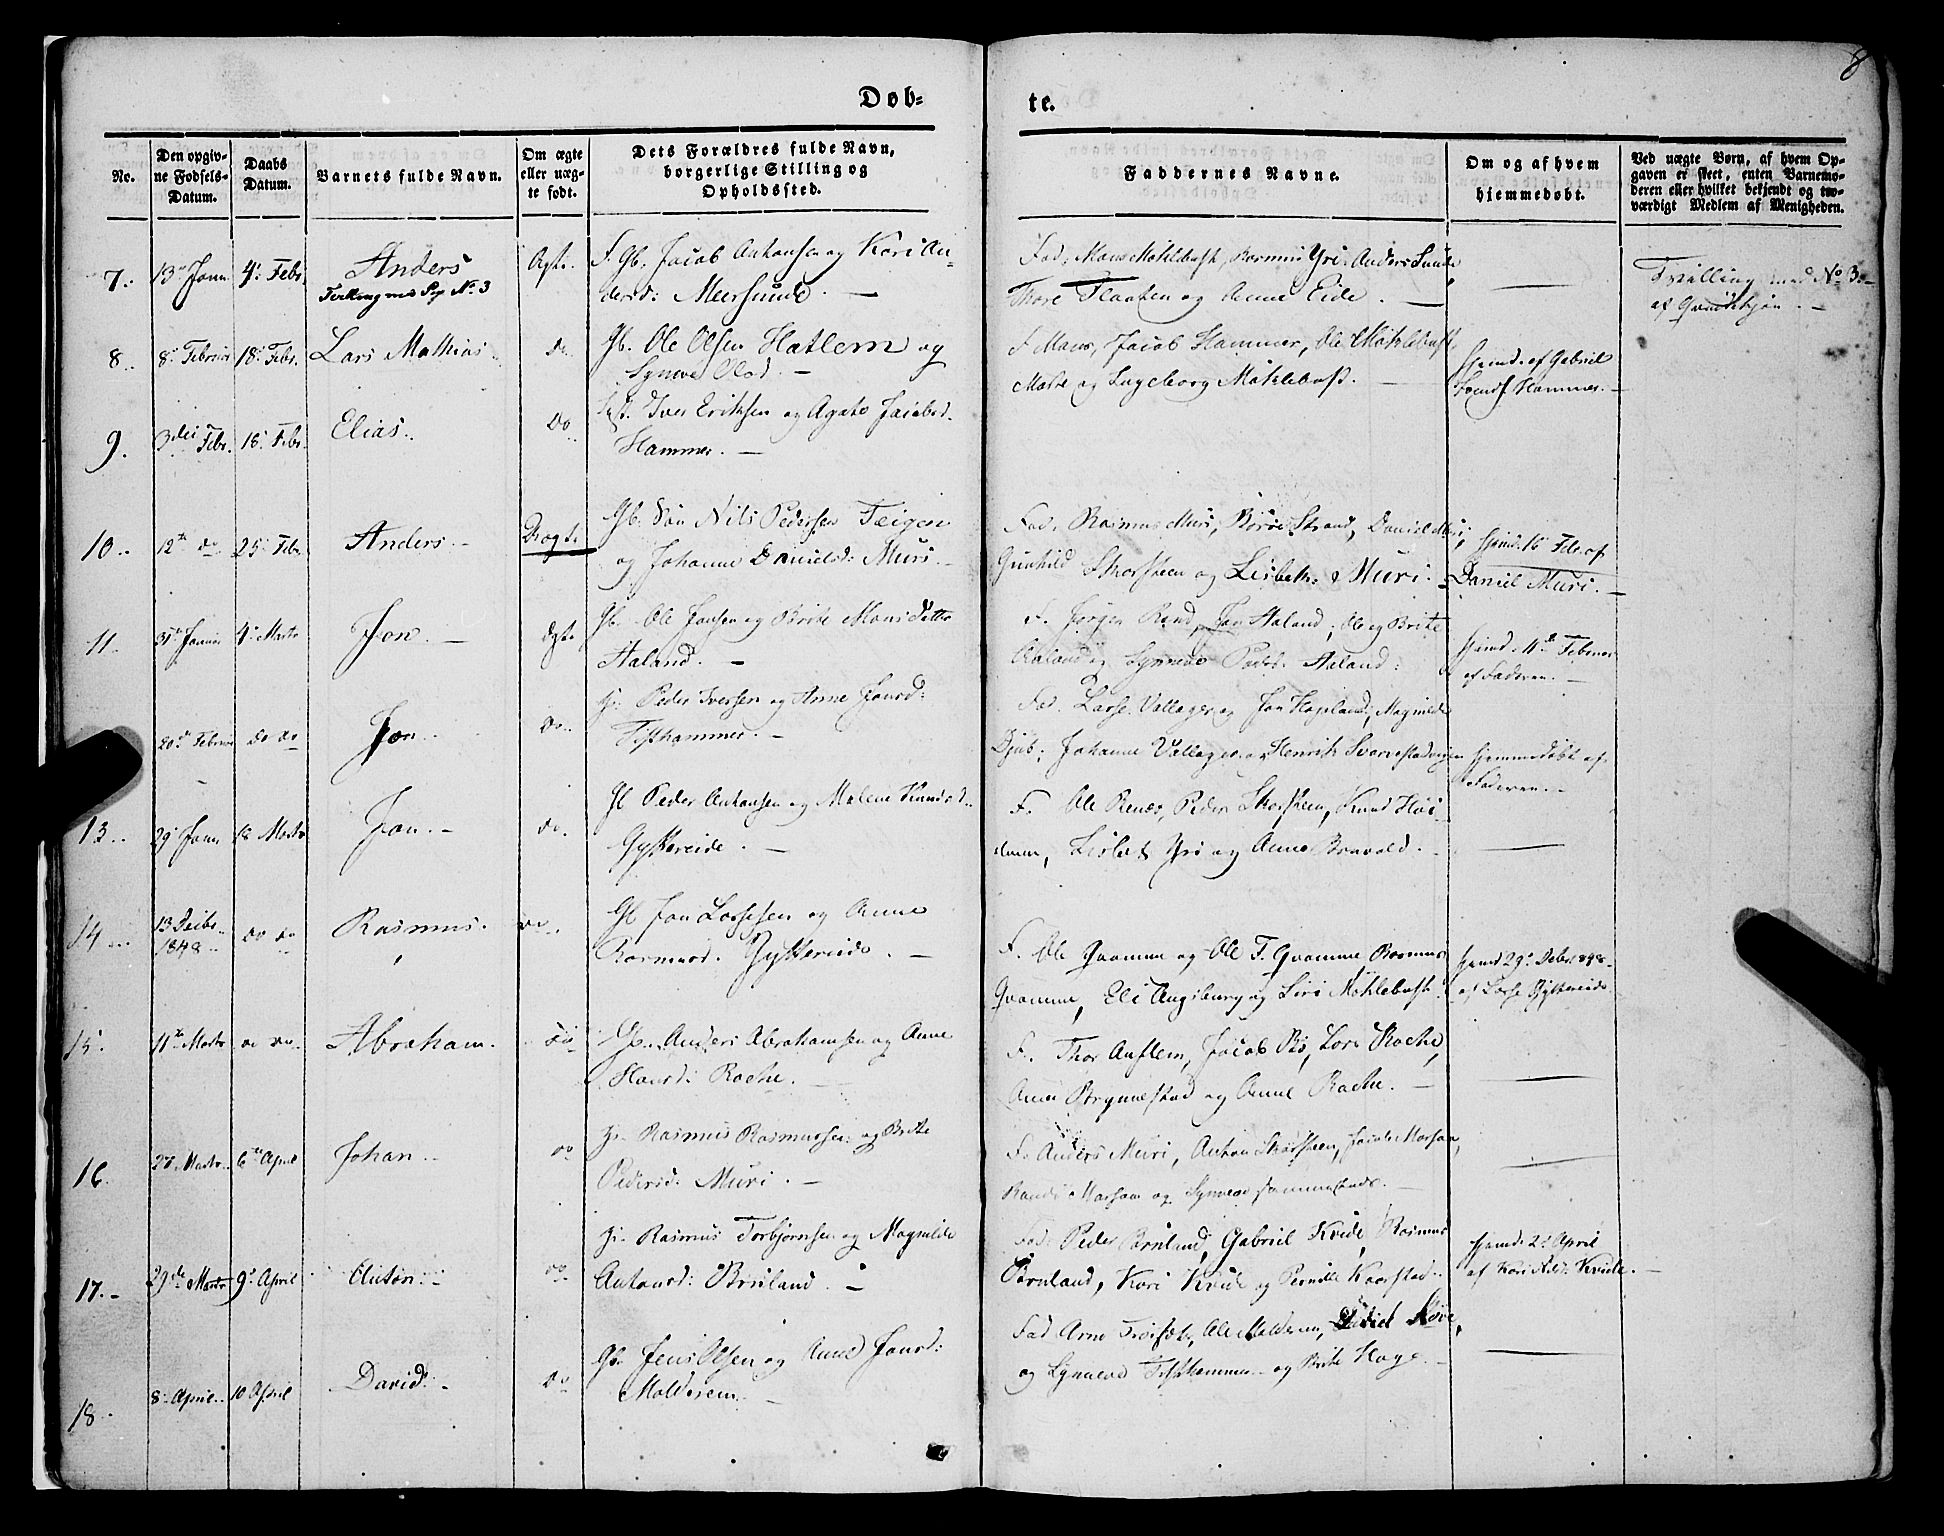 8
Døb=
te.
No.
Den opgiv-
ne Fødsels-
Datum.
Daabs
Datum.
Barnets fulde Navn.
Om ægte
eller uæg-
te født.
Dets Forældres fulde Navn,
borgerlige Stilling og
Opholdssted.
Faddernes Navne.
Om og af hvem
hjemmedøbt.
Ved uægte Børn, af hvem Op-
gaven er skeet, enten Barnemo-
deren eller hvilket bekjendt og tro-
værdigt Medlem af Menigheden.
7. 13 Janu 4 Febr. Anders Ægte. F. Gb. Jacob Antonsen og Kari An-
No. 3
dersd: Meersunde. —
Fad. Mons Myklebust, Rasmus Yri, Anders Sunde
Thore Flaaten og Anne Eide. —
Tvilling med No 3
af Qvindekjøn. —
8. 8 Februar 18 Febr. Lars Mathias. Do Gb. Ole Olsen Hatlem og
Synneve Olsd. —
F. Mons, Jacob Hammer, Ole Myklebust,
Marte og Ingeborg Myklebust. —
Hjemd. af Gabriel
Hammer. —
9. 3die Febr. 18 Febr. Elias. Do Iver Eriksen og Agate Jacobsd.
Hammer. —
10. 12te do 25 Febr Anders. — Uægte Gb. Søn Nils Pedersen Teigen
og Johanne Danielsd: Muri. —
Fad. Rasmus Muri, Børre Strand, Daniel Muri,
Gunhild Skorsteen og Lisbeth Muri.
Hjemd. 16 Febr. af
Daniel Muri. —
11. 31te Januar 4 Marts Jon. — Ægte Gb. Ole Jonsen og Brite Monsdatter
Aaland. —
F. Jørgen Rand, Jon Aaland, Ole og Brite
Aaland og Synneve Pedersd. Aaland.
Hjemd. 11te Februar
af Faderen. —
20de Februar do do Jon. Do. Peder Iversen og Anne Jonsd:
Fisthammer. —
Fad. Lasse Vollager og Jon Hopland, Magnilde
Djub, Johanne Vollager og Henrik Svarvestadvigen
Hjemmedøbt af
Faderen. —
13. 29 Janu 18 Marts Jon. — do. Gb Peder Antonsen og Malene Knudsd.
Gytkereide. —
F. Ole Renæs, Peder Skorsteen, Knud Høi-
Lisbet Yri og Anne Brævold.
14. 13 Decbr.
1848. do do Rasmus. do. Gb Jon Lassesen og Anne
Rasmusd. Gytkereide. —
F. Ole Qvamme og Ole T. Qvamme Rasmus
Qvamme, Eli Augsburg og Siri Myklebust.
Hjemd 29 Debr. 1848
af Lasse Gytkereide.
15. 11te Marts do do. Abraham. do Gb. Anders Abrahamsen og Anne
Hansd: Rache. —
F. Thor Anflem, Jacob Bø, Lars Rache,
Anne Brynnestad og Anne Rache. —
16. 27 Marts 6te April Johan. do Rasmus Rasmussen og Brite
Pedersd. Muri. —
F. Anders Muri, Anton Skorsteen, Jacob Marsaa,
Randi Marsaa og Synneve sammesteds. —
17. — 29de Marts 9 April Anton. — do. Rasmus Torbjørnsen og Magnilde
Antonsd: Bruland. —
Fad. Peder Bruland, Gabriel Kvide, Rasmus
Bruland, Kari Kvide og Pernille Kaarstad.
Hjemd. 2 April
af Kari Kvide. —
18. 8 April 10 April David. — do Gb. Jens Olsen og Anne Jonsd:
Molderem. —
Fad Arne Ole Molderem,
og Synneve Fisthammer og Brite Hage. —